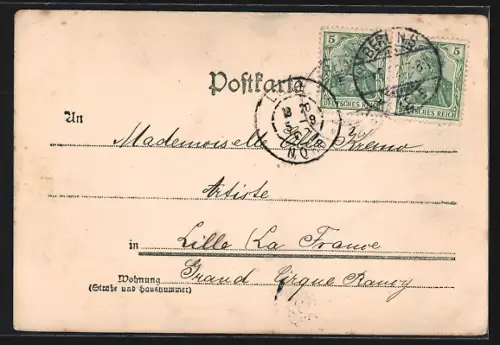 5 5
DEUTSCHES REICH DEUTSCHES REICH
BERLIN
Postkarte
NORD
An
Mademoiselle Kremo
Artiste
in Lille (La France
Wohnung Grand Cirque Rancy
(Straße und Hausnummer)